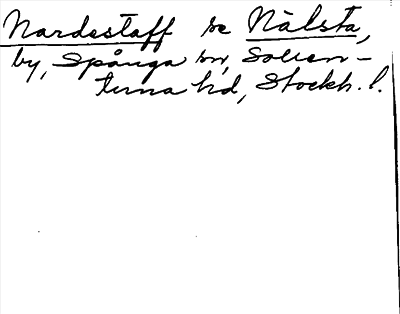 Nardestaff se Nälsta,
by, Spånga sn, Sollen-
tuna hd, Stockh. l.